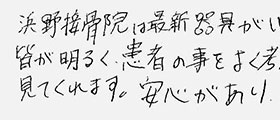 浜野接骨院は最新器具がい
皆が明るく、患者の事をよく考
見てくれます。安心があり、